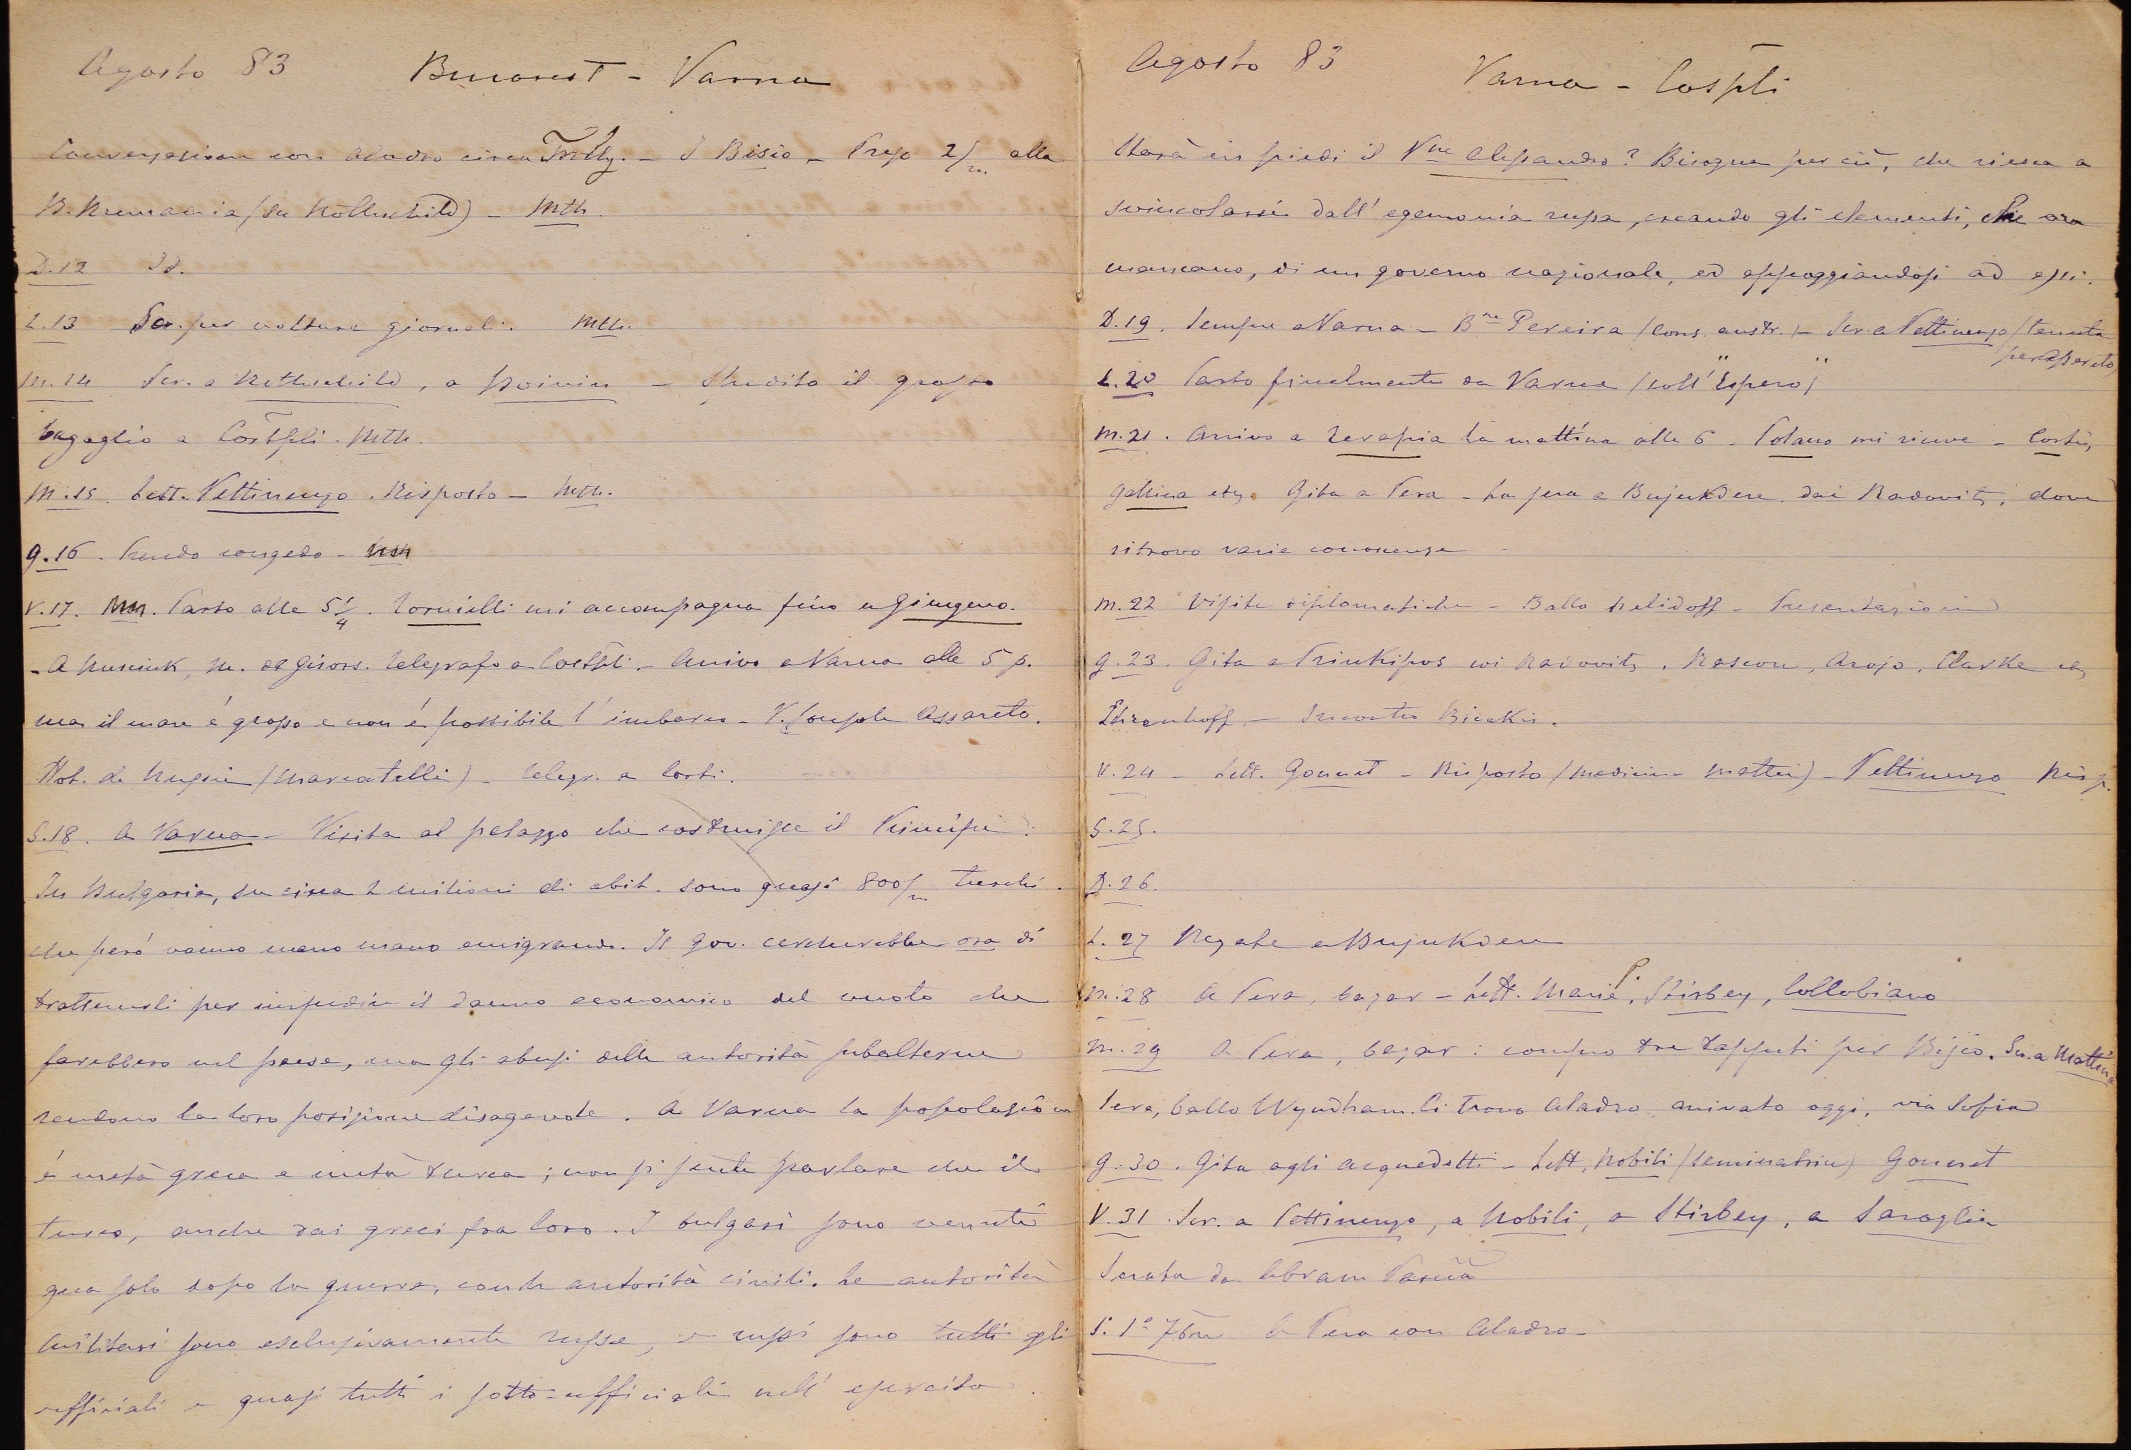 Agosto 83 Bucarest - Varna
Conversazione con Aladro circa - I Bisio - Prego 2/m alla
B. Rumania (da Rothschild) - Mth.
D. 12 Id.
L. 13 Scr. per vetture giornal. Mth.
M. 14 Scr. a Rothschild, a - Spedito il grosso
bagaglio a Costpli. Mth.
M. 15 Lett. Pettinengo. Risposto - Mth.
G. 16. Prendo congedo - Mth
V. 17. Mth. Parto alle 5 1/4. Tornielli mi accompagna fino a Giurgevo.
- A Rusciuk, M. de Gisors. Telegrafo a Costpli. - Arrivo a Varna alle 5 p.
ma il mare é grosso e non é possibile l'imbarco - V. Console Assereto.
Hot. de Russie (Marcatelli) - Telegr. a Corti.
S. 18. A Varna - Visita al palazzo che costruisce il Principe:
In Bulgaria, su circa 2 milioni di abit. sono quasi 800/m turchi.
che peró vanno mano mano emigrando. Il gov. cercherebbe ora di
trattenerli per impedire il danno economico del vuoto che
farebbero nel paese, ma gli abusi delle autorità subalterne
rendono la loro posizione disagevole. A Varna la popolazione
é metà greca e metà turca; non si sente parlare che il
turco, anche dai greci fra loro. I bulgari sono venuti
qua solo dopo la guerra, con le autorità civili. Le autorità
militari sono esclusivamente russe, e russi sono tutti gli
ufficiali e quasi tutti i sotto-ufficiali nell'esercito.
Agosto 83 Varna - Costpli
Starà in piedi il Pne Alessandro? Bisogna per ciò, che riesca a
svincolarsi dall'egemonia russa, creando gli elementi, che ora
mancano, di un governo nazionale, ed appoggiandosi ad essi.
D. 19. Sempre a Varna - Bne Pereira (cons. austr.) - Scr. a Pettinengo (tenuta
per Assereto)
L. 20 Parto finalmente da Varna (coll'"Espero")
M. 21. Arrivo a Terapia la mattina alle 6 - Polano mi riceve - Corti,
Gallina etc. Gita a Pera - La sera a Bujukdere dai Radovitz, dove
ritrovo varie conoscenze -
M. 22 Visite diplomatiche - Ballo Nelidoff - Presentazioni
G. 23. Gita a Prinkipos coi Radovitz, Rascon, Arojo, Clarke etc
Ehrenhoff - Incontro
V. 24 - Lett. Gonnet - Risposto (medicin. Mattei) - Pettinengo Risp.
S. 25.
D. 26.
L. 27 Regate a Bujukdere
M. 28 A Pera, bazar - Lett. Marie P. Stirbey, Collobiano
M. 29 A Pera, bazar: compro tre tappeti per Bisio. Scr. a Mattina
Sera, ballo Wyndham. Ci trovo Aladro, arrivato oggi, via Sofia
G. 30. Gita agli acquedotti - Lett. Nobili (seminatrici) Gonnet
V. 31. Scr. a Pettinengo, a Nobili, a Stirbey, a Saraglia
Serata da Abram Pascià
S. 1° 7bre A Pera con Aladro -